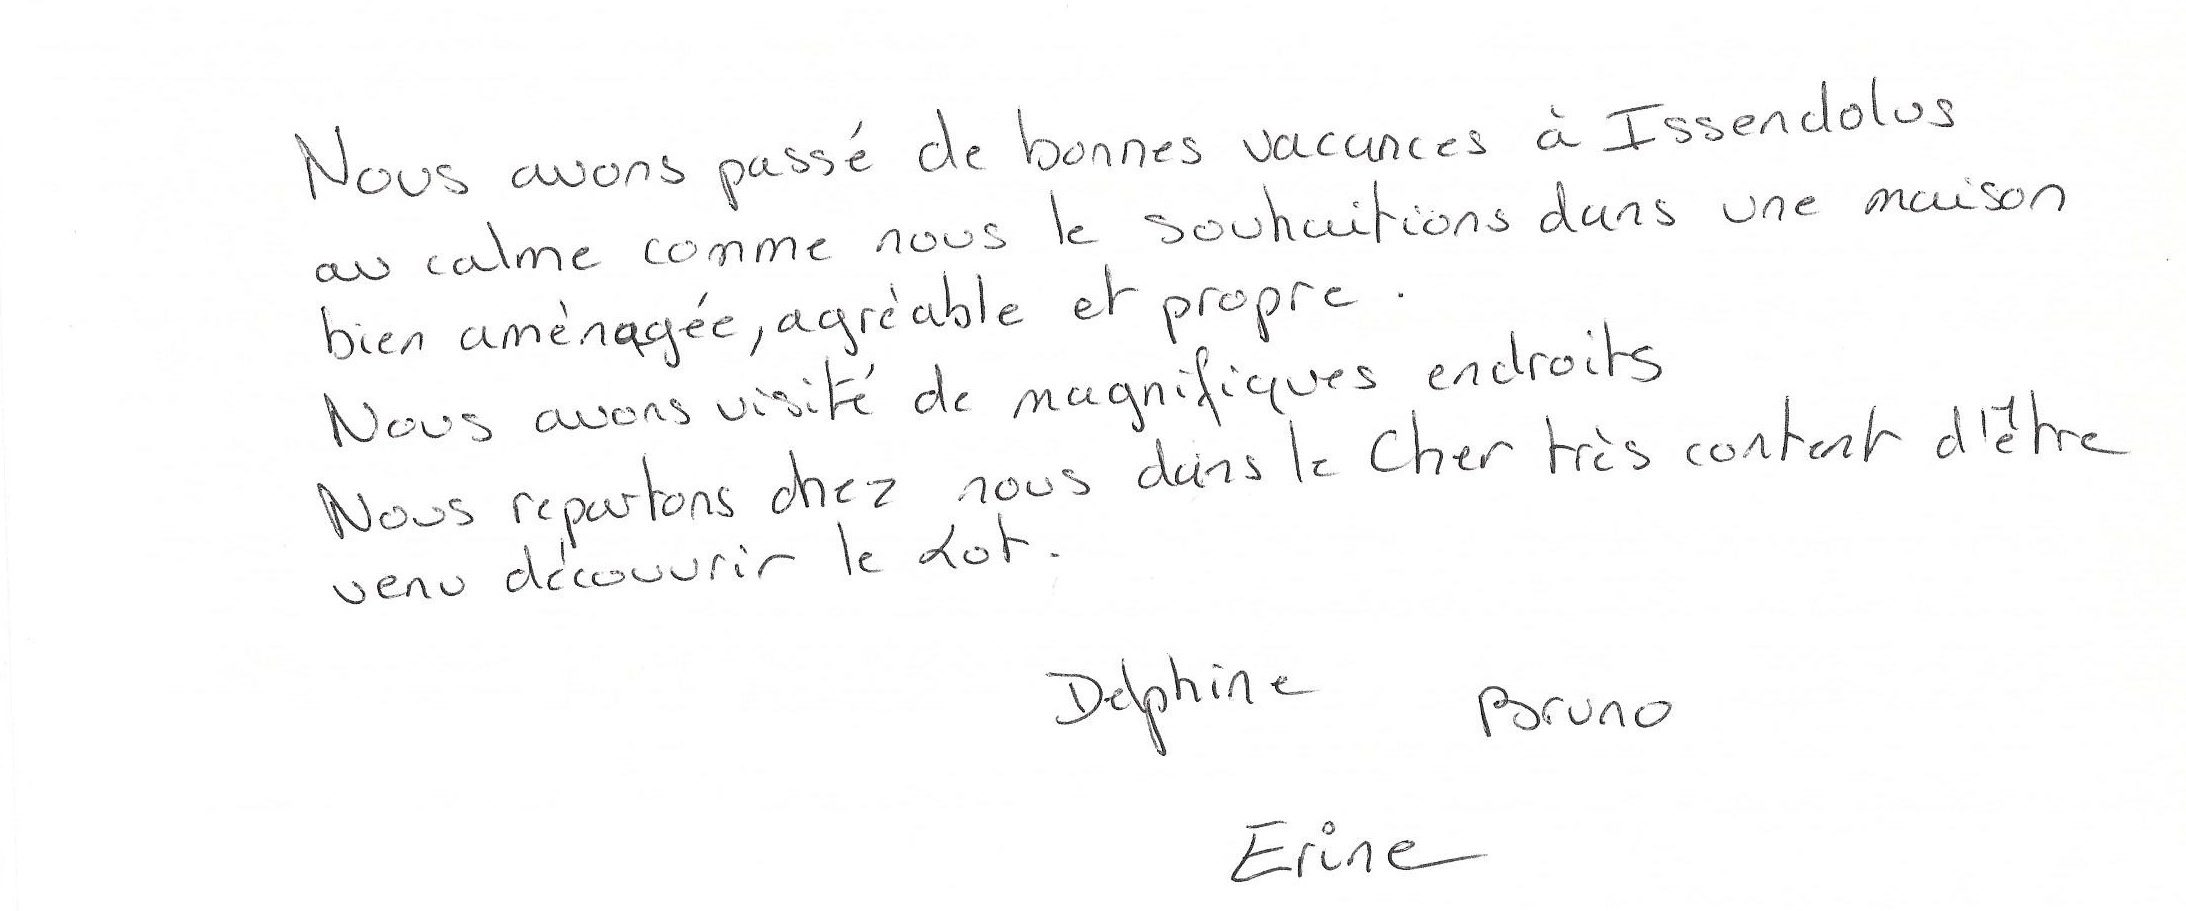 Nous avons passé de bonnes vacances à Issendolus
au calme comme nous le souhaitions dans une maison
bien aménagée, agréable et propre.
Nous avons visité de magnifiques endroits
Nous repartons chez nous dans le Cher très content d'être
venu découvrir le Lot.
Delphine Bruno
Erine